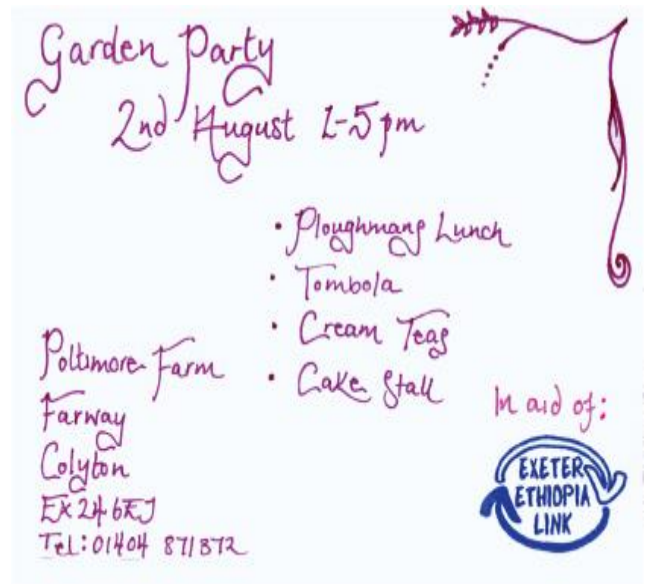 Garden Party
2nd August 1-5pm
• Ploughmans Lunch
• Tombola
• Cream Teas
• Cake Stall
Poltimore Farm
Farway
Colyton
EX24 6EJ
Tel: 01404 871372
In aid of:
EXETER
ETHIOPIA
LINK